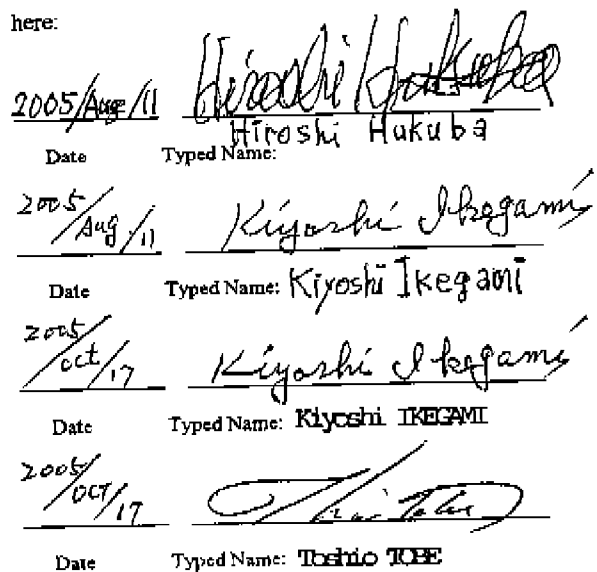 here:
2005/Aug/11 Hiroshi Hukuba
Hiroshi Hukuba
Date Typed Name:
2005/Aug/11 Kiyoshi Ikegami
Date Typed Name: Kiyoshi Ikegami
2005/oct/17 Kiyoshi Ikegami
Date Typed Name: Kiyoshi IKEGAMI
2005/OCT/17 Toshio Tobe
Date Typed Name: Toshio TOBE